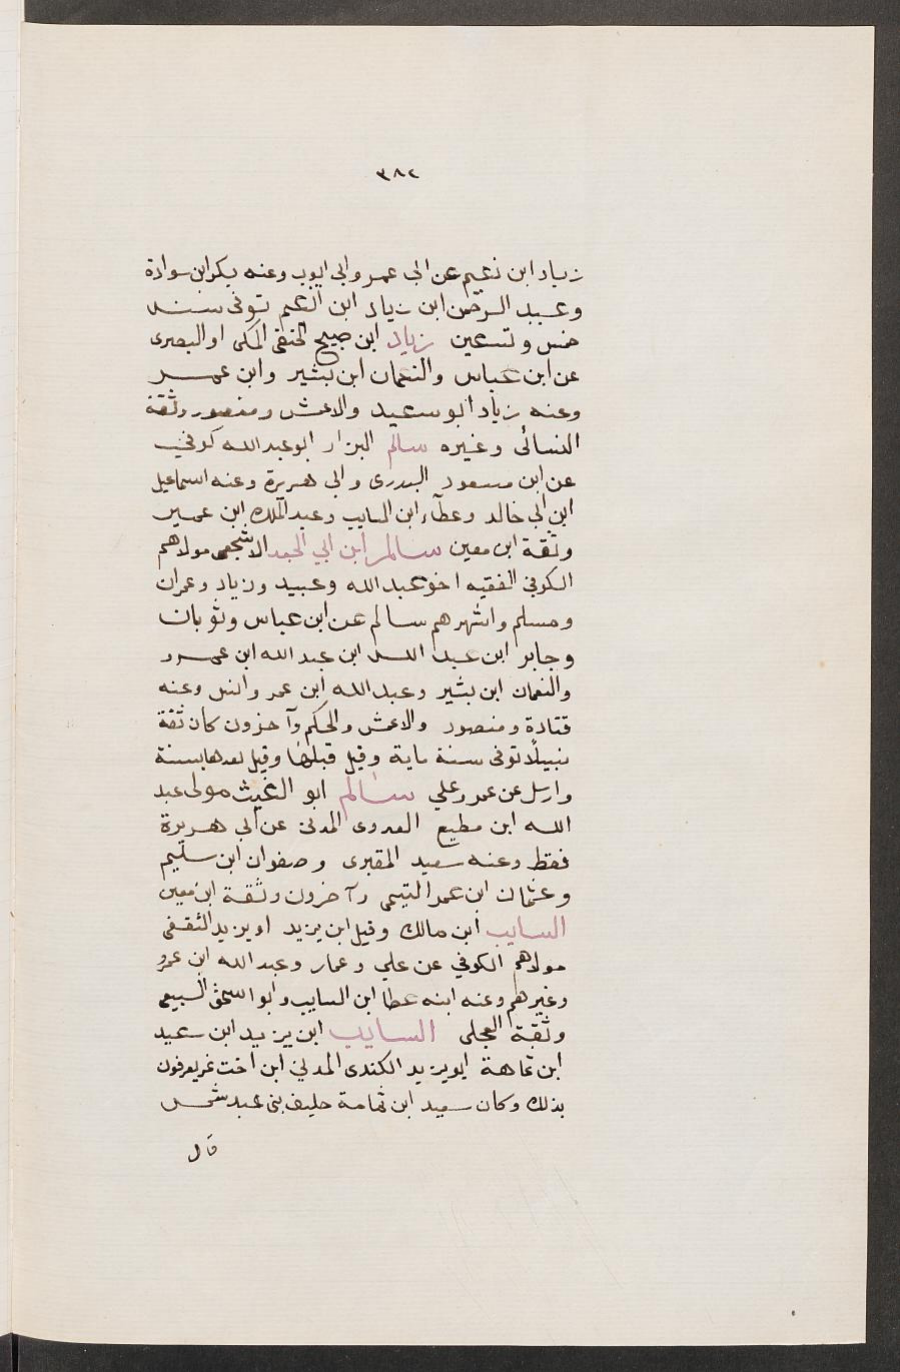 ٣٨٢
زياد ابن نعيم عن ابي عمر وابي ايوب وعنه بكر ابن سوادة
وعبد الرحمن ابن زياد ابن انعم توفى سنه
خمس وتسعين زياد ابن صبيح الحنفي المكى او البصرى
عن ابن عباس والنعمان ابن بشير وابن عمر
وعنه زياد ابو سعيد والاعمش ومنصور وثقة
النسائى وغيره سالم البزار ابو عبد الله كوفي
عن ابن مسعود البدرى وابي هريرة وعنه اسماعيل
ابن ابي خالد وعطآء ابن السايب وعبد الملك ابن عمير
وثقة ابن معين سالم ابن ابي الجعد الاشجعى مولاهم
الكوفي الفقيه اخو عبد الله وعبيد وزياد وعمران
ومسلم واشهرهم سالم عن ابن عباس وثوبان
وجابر ابن عبد الله ابن عبد الله ابن عمرو
والنعمان ابن بشير وعبد الله ابن عمر وانس وعنه
قتادة ومنصور والاعمش والحكم وآخرون كان ثقة
نبيلا توفى سنة ماية وقيل قبلها وقيل بعدها بسنة
وارسل عن عمر وعلي سالم ابو الغيث مولى عبد
الله ابن مطيع العدوى المدنى عن ابي هريرة
فقط وعنه سعيد المقبرى وصفوان ابن سليم
وعثمان ابن عمر التيمى وآخرون وثقة ابن معين
السايب ابن مالك وقيل ابن يزيد او يزيد الثقفى
مولاهم الكوفي عن علي وعمار وعبد الله ابن عمرو
وغيرهم وعنه ابنه عطا ابن السايب وابو اسحق السبيعى
وثقة العجلى السايب ابن يزيد ابن سعيد
ابن ثمامة ابو يزيد الكندى المدني ابن اخت نمر يعرفون
بذلك وكان سعيد ابن ثمامة حليف بنى عبد شمس
قال